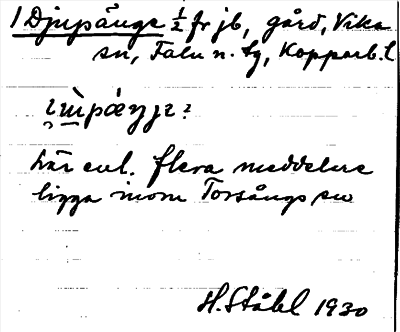 1 Djupänge ½ fr jb, gård, Vika
sn, Falu n. tg, Kopparb. l
här enl. flera meddelare
ligga inom Torsångs sn
H. Ståhl 1930